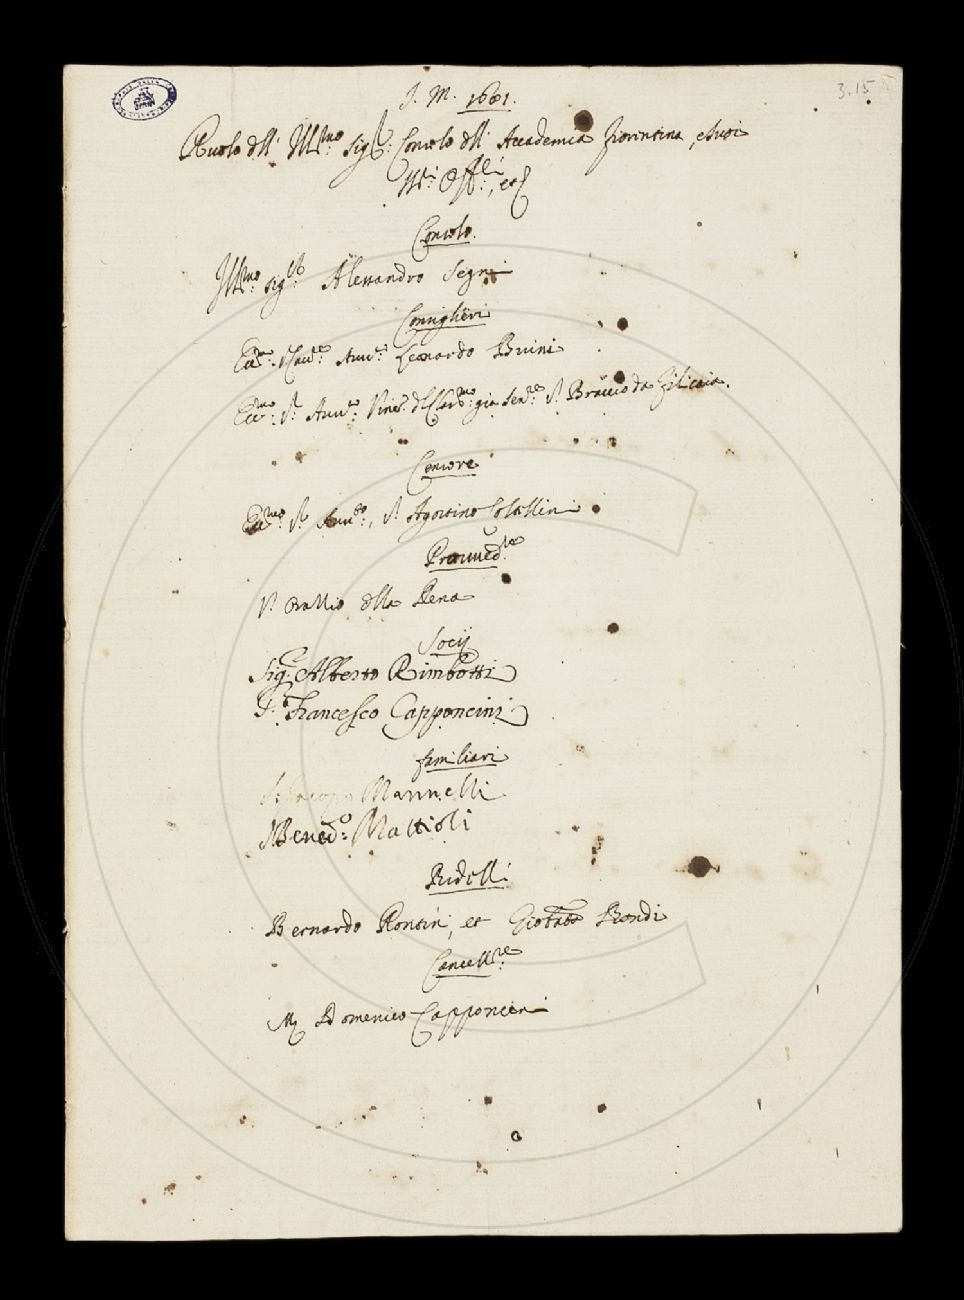 3.15
J. M. 1681.
Ruolo dell' Ill.mo Sig.r Consolo dell' Accademia Fiorentina, e suoi
Offi.li, etc
Consolo.
Ill.mo Sig.r Alessandro Segni
Consiglieri
Ecc.mo Leonardo Bruini
Ecc.mo S.r Avv.to Vinc.o già Sen.re S.r Braccio da Filicaia.
Censore
Ecc.mo S.r Avv.to, S.r Agostino Coltellini
Provved.re
S.r Orazio della Rena
Socij
Sig.r Alberto Rimbotti
S.r Francesco Capponcini
familiari
S. Jacopo Mannelli
S. Bened.o Mattioli
Bidelli
Bernardo Rontini, et Gio Batta Biondi
Cancell.re
M Domenico Capponcini